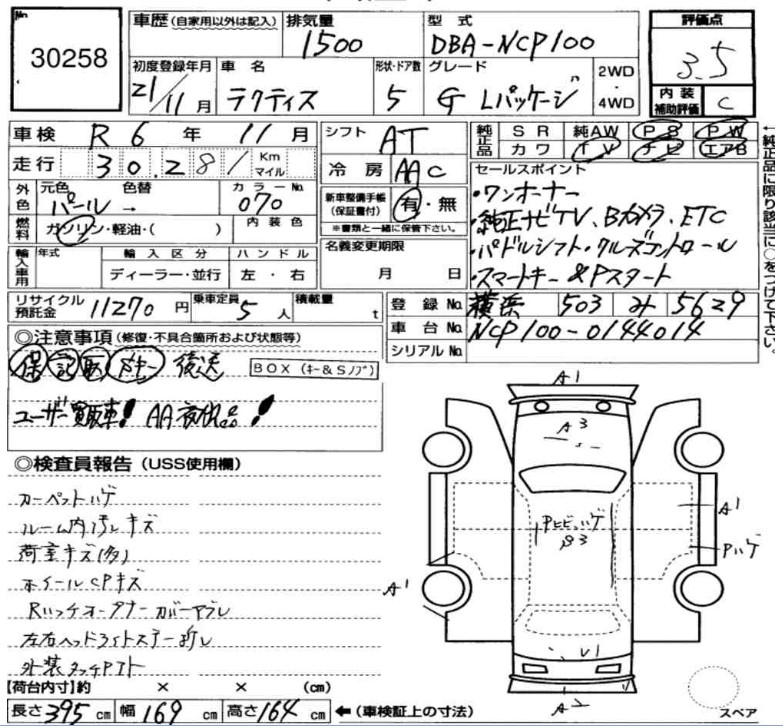 No.
30258
車歴(自家用以外は記入)
排気量
1500
型式
DBA-NCP100
評価点
3.5
初度登録年月
21/11月
車名
ラクティス
形状・ドア数
5
グレード
G Lパッケージ
2WD
・
4WD
内装
補助評価
C
車検 R6年11月
シフト AT
純正品
SR 純AW PS PW
カワ TV ナビ エアB
走行 30,281 Km
マイル
冷房 AAC
外色
元色 パール →
色替
カラーNo. 070
新車整備手帳
(保証書付)
有・無
※書類と一緒に保管下さい。
燃料 ガソリン・軽油・( )
内装色
名義変更期限
月 日
輸入車用
年式
輸入区分
ディーラー・並行
ハンドル
左・右
セールスポイント
・ワンオーナー
・純正ナビTV、Bカメラ、ETC
・パドルシフト・クルーズコントロール
・スマートキー&Pスタート
リサイクル
預託金
11270円
乗車定員 5人
積載量 t
登録No. 横浜 503 み 5629
車台No. NCP100-0144014
シリアルNo.
←純正品に限り該当に○をつけて下さい。
◎注意事項(修復・不具合箇所および状態等)
保 記 取 メキー 後送
BOX (キー&Sノブ)
ユーザー買取車! AA初出品!
◎検査員報告(USS使用欄)
カーペットハゲ
ルーム内汚レキズ
荷室キズ(多)
ホイールCPキズ
左右ヘッドライト
外装タッチアト
【荷台内寸】約 × × (cm)
長さ395cm 幅169cm 高さ164cm ←(車検証上の寸法)
A1
A3
A1
Pハゲ
A1
V1
A2
スペア